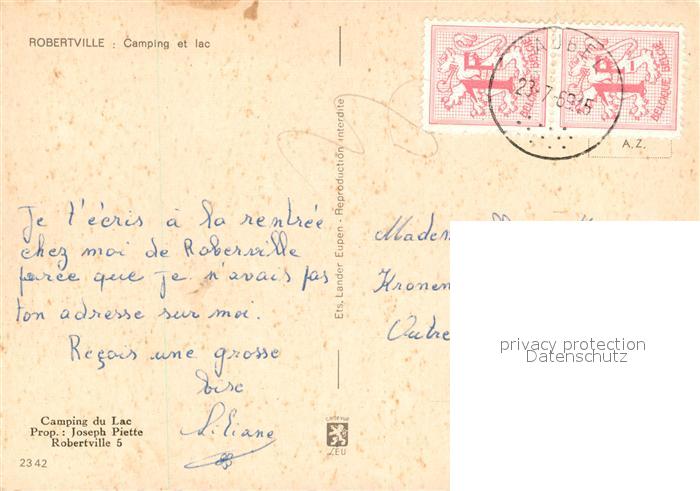 ROBERTVILLE : Camping et lac
1F
BELGIQUE-BELGIE
1F
BELGIQUE-BELGIE
AUBEL
23-7-69 15
A.Z.
Ets. Lander Eupen - Reproduction interdite
Je t'écris à la rentrée
chez moi de Roberville
parce que je n'avais pas
ton adresse sur moi.
Reçois une grosse
bise
Liliane
Madem
Kronen
Outre
privacy protection
Datenschutz
Camping du Lac
Prop.: Joseph Piette
Robertville 5
2342
carte vue
LEU